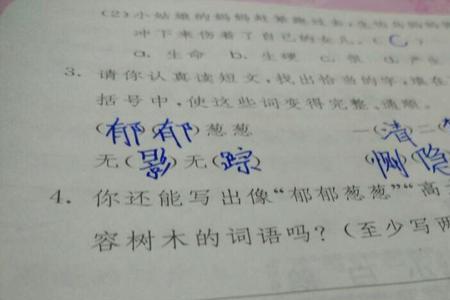 (2)小姑娘的妈妈
冲下来伤着了自己的女儿。(C)
a. 生命 b. 生硬 c.
3. 请你认真读短文,找出恰当的字,填在
括号中,使这些词变得完整、通顺。
(郁)(郁)葱葱 一(清)二(
无(影)无(踪) (恻)(隐)
4. 你还能写出像“郁郁葱葱”“高
容树木的词语吗?(至少写两